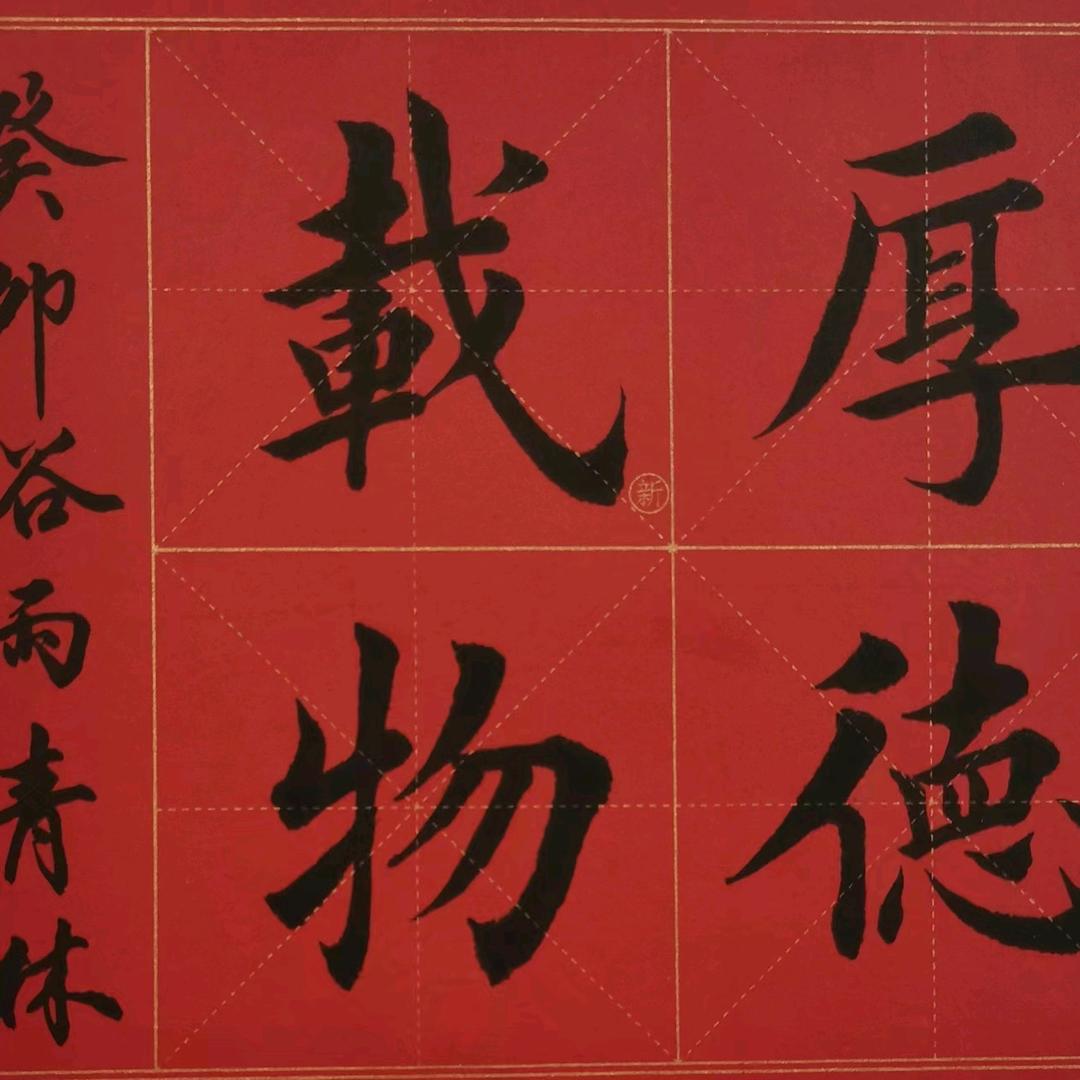 厚德
載物
癸卯谷雨青林
新